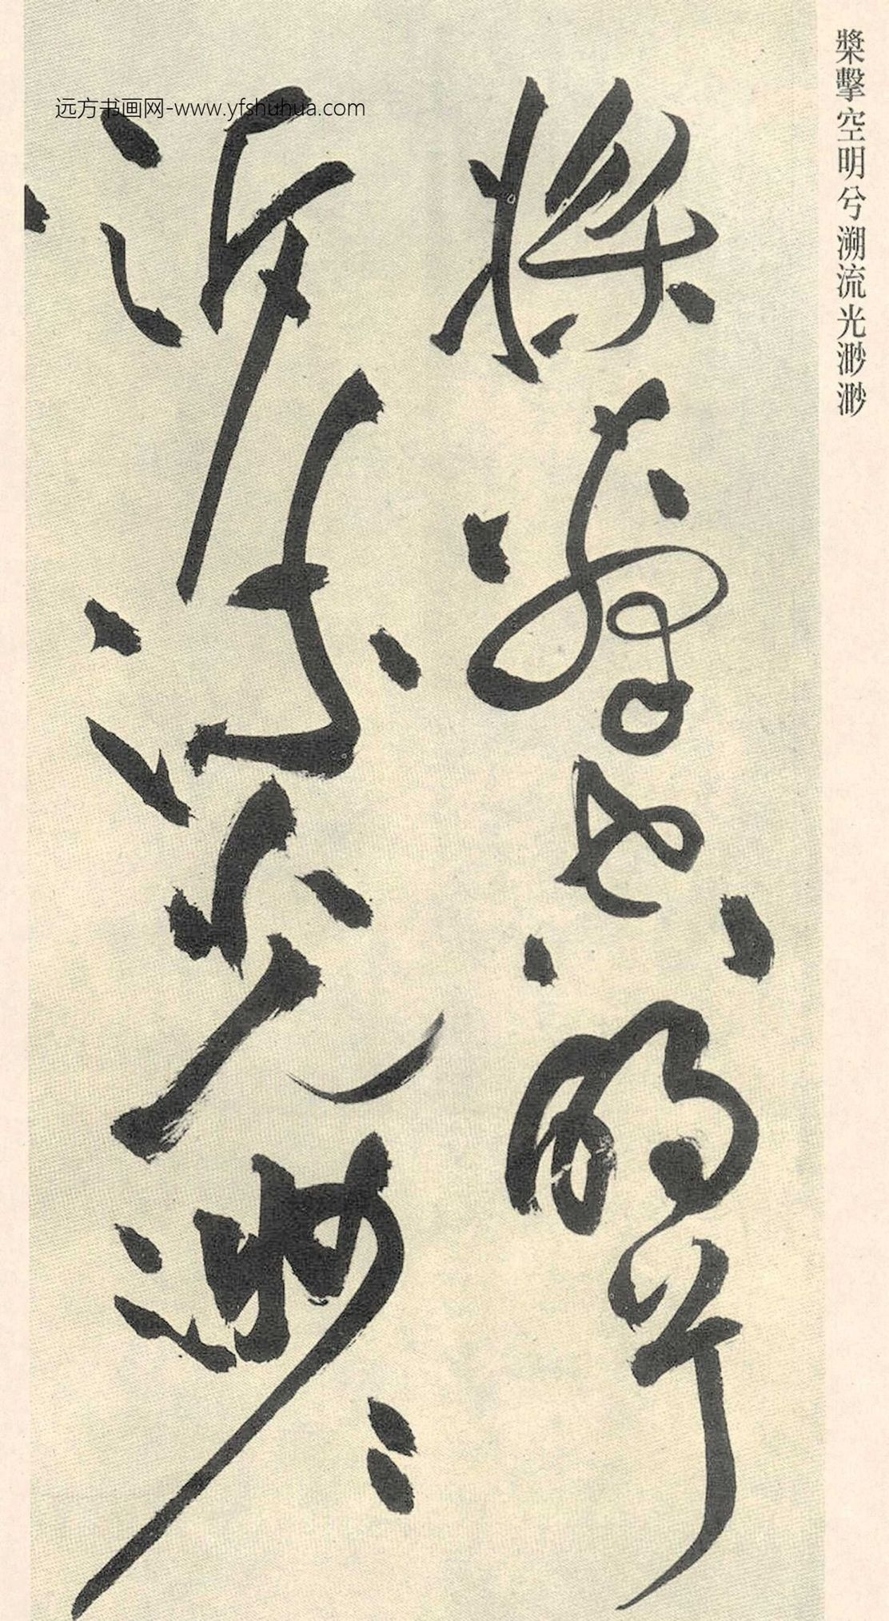 槳擊空明兮溯流光渺渺
槳擊空明兮
泝流光渺〻
远方书画网-www.yfshuhua.com